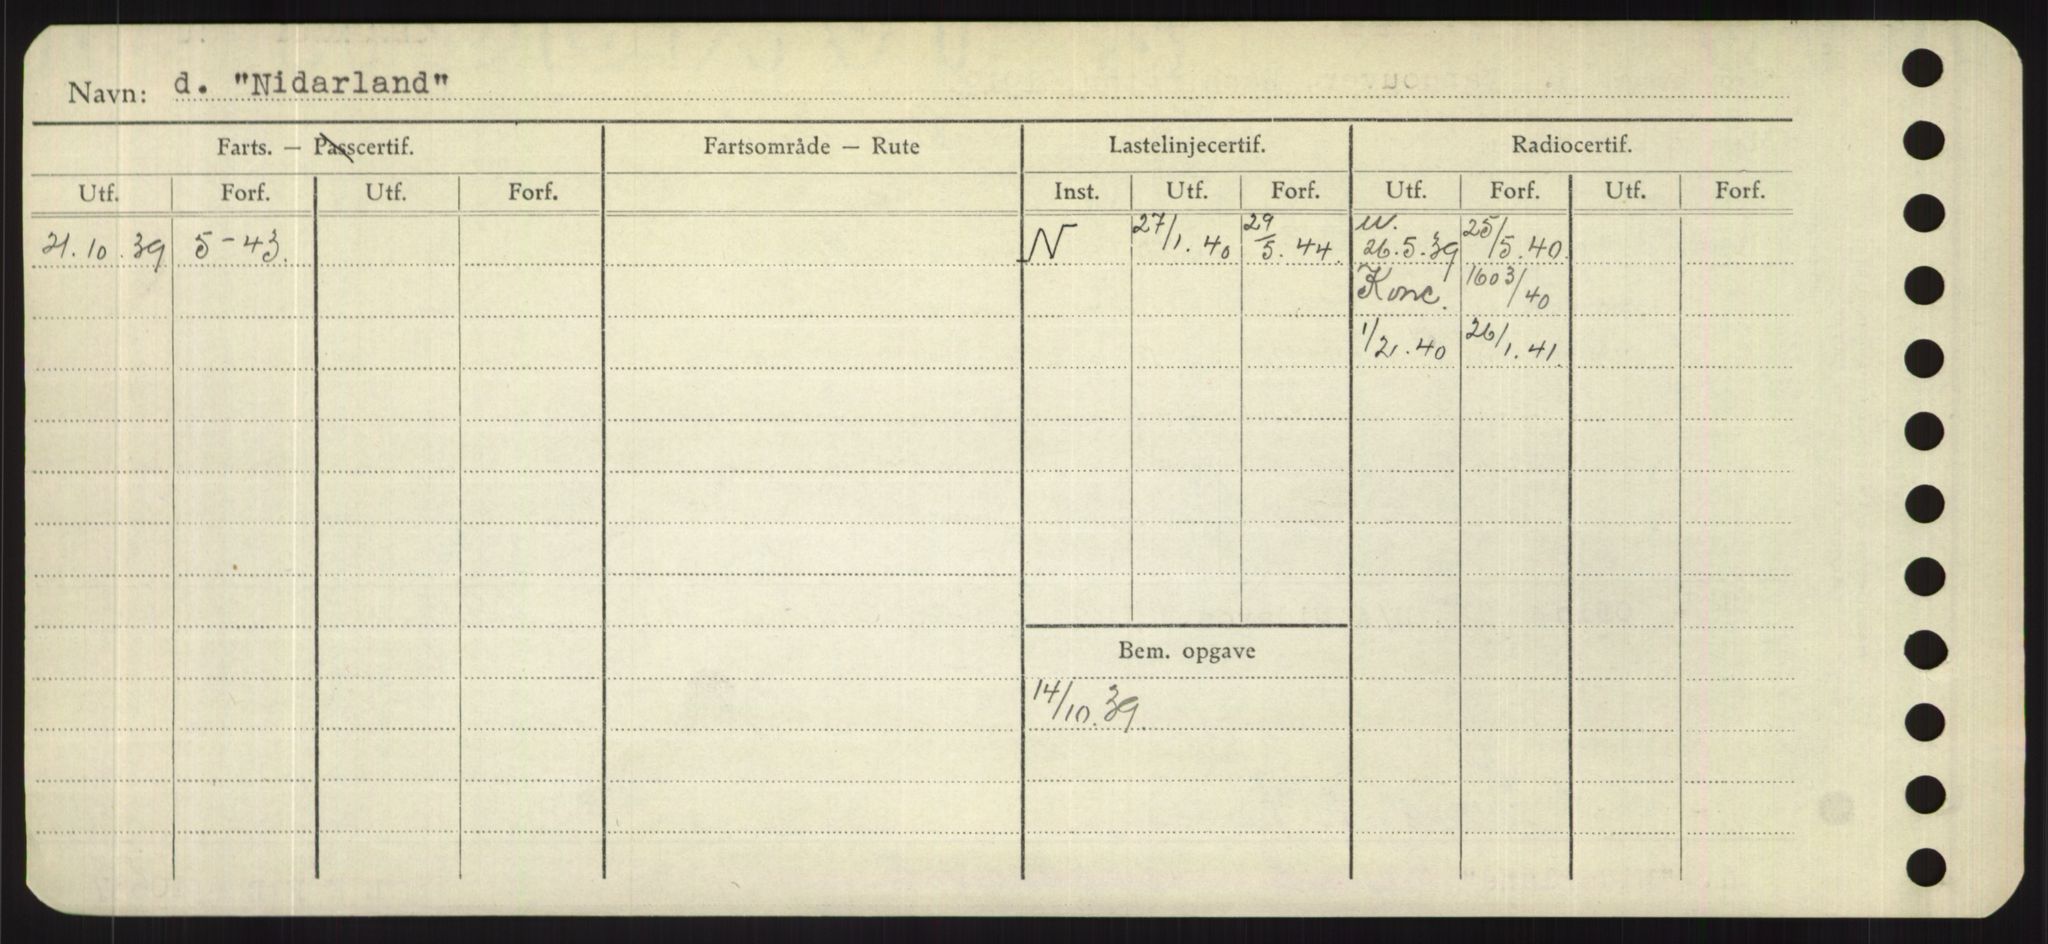 Navn: d. "Nidarland"
Farts. — Passcertif. Fartsområde — Rute Lastelinjecertif. Radiocertif.
Utf. Forf. Utf. Forf. Inst. Utf. Forf. Utf. Forf. Utf. Forf.
21.10.39 5-43. N 27/1.40 29/5.44. 26.5.39 25/5.40.
Konc. 1603/40
1/2.40 26/1.41
Bem. opgave
14/10.39.